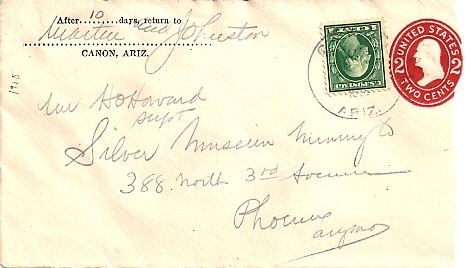 After 10 days, return to
Martin and Johnston
CANON, ARIZ.
1918
Mr HO Howard
Supt
Silver Museum Mining Co
388 North 3rd Avenue
Phoenix
ARIZ.
UNITED STATES
2 2
TWO CENTS